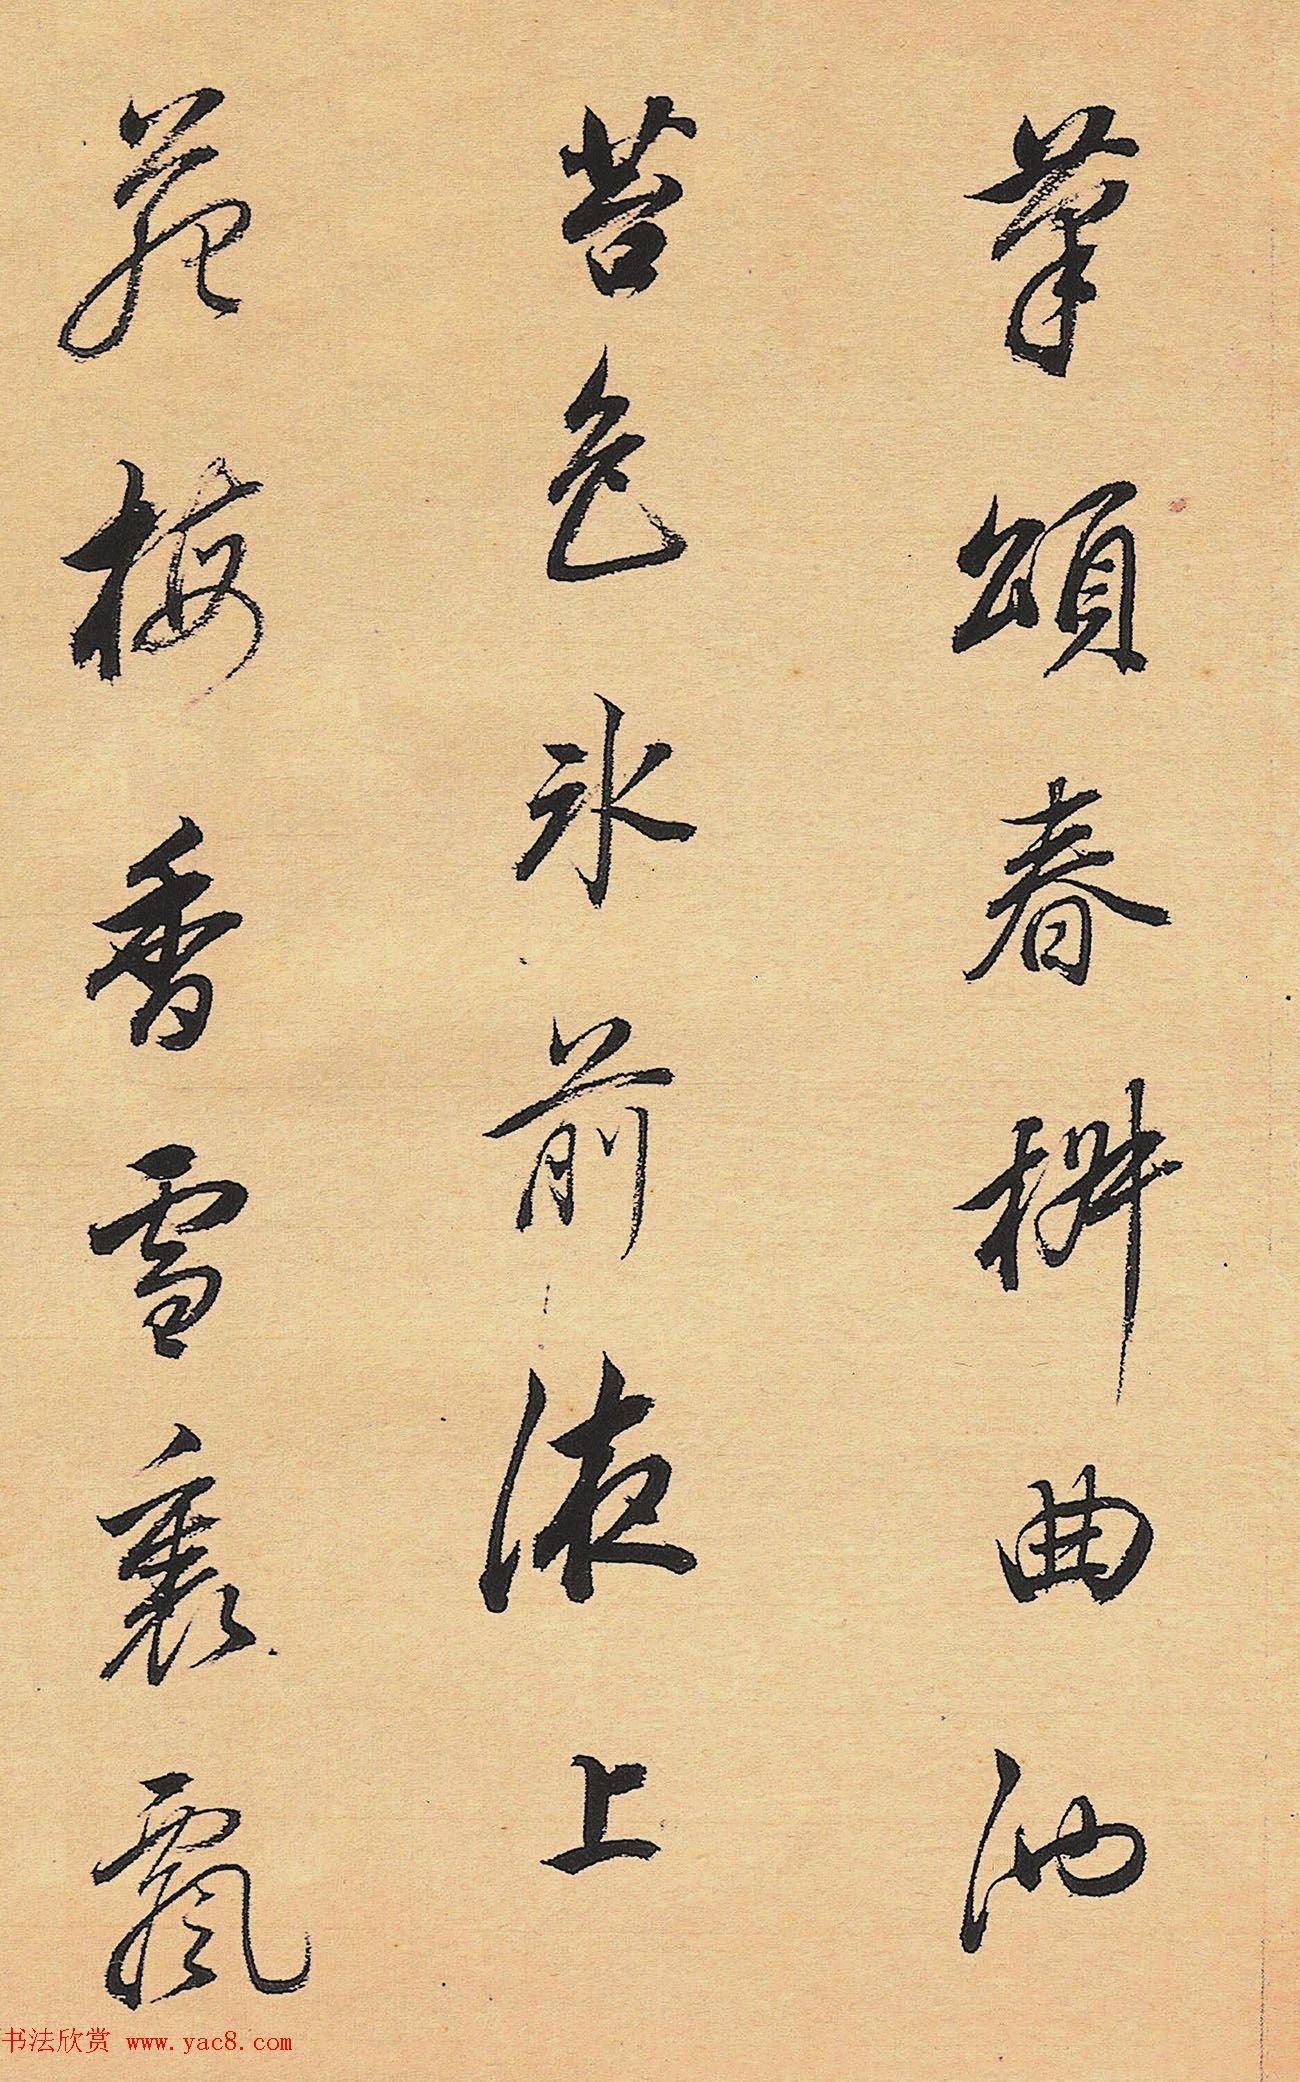 筆頌春椒曲池
苔色冰前液上
苑梅香雪裏飄
书法欣赏 www.yac8.com